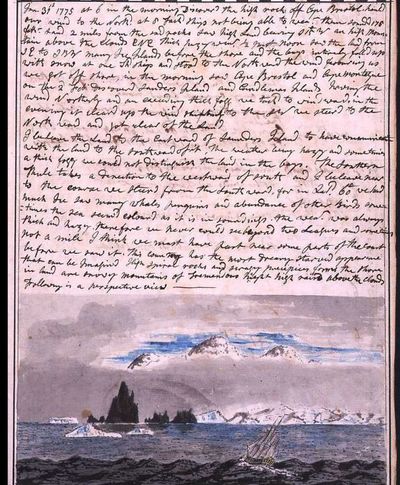 Jan 31st 1775 at 6 in the morning the high rock off Cape Bristol
our wind to the North at 8
2 miles from the rocks high land bearing an high Moun
tain above the clouds ENE this hazy wea^r
many Islands before the shore and the bays intirely filled up
with snow at one Ships and stood to the North and the wind favouring us
we got off shore in the morning saw Cape Bristol and Cape montague
on Feb 2 Feb discovered Sanders Island and Candlemas Islands having the
wind Northerly and an exceeding thick fogg we tack'd to wind ward in the
evening it cleard up the wind shifting to the we stood to the
North ward and got clear of the land
I believe the land to the Eastward of Saunders Island to have communicated
with the land to the southward of it the weather being hazy and sometimes
a thick fogg we could not distinguish the land in the bays The Southern
thule takes a direction to the westward of south and I believe near
to the course we steerd from the South ward, for in Lat 60° we had
much Ice saw many whales penguins and abundance of other birds some
times the sea seemd colourd as it is in soundings the wea^r was always
thick and hazy therefore we never could see beyond two Leagues and sometimes
not a mile I think we must have past near some parts of the coast
before we saw it this country has the most dreary starved appearance
that can be Imagin'd high rocks and precipices forms the shore
in land are snowy mountains of tremendous height high raised above the clouds
following is a perspective view